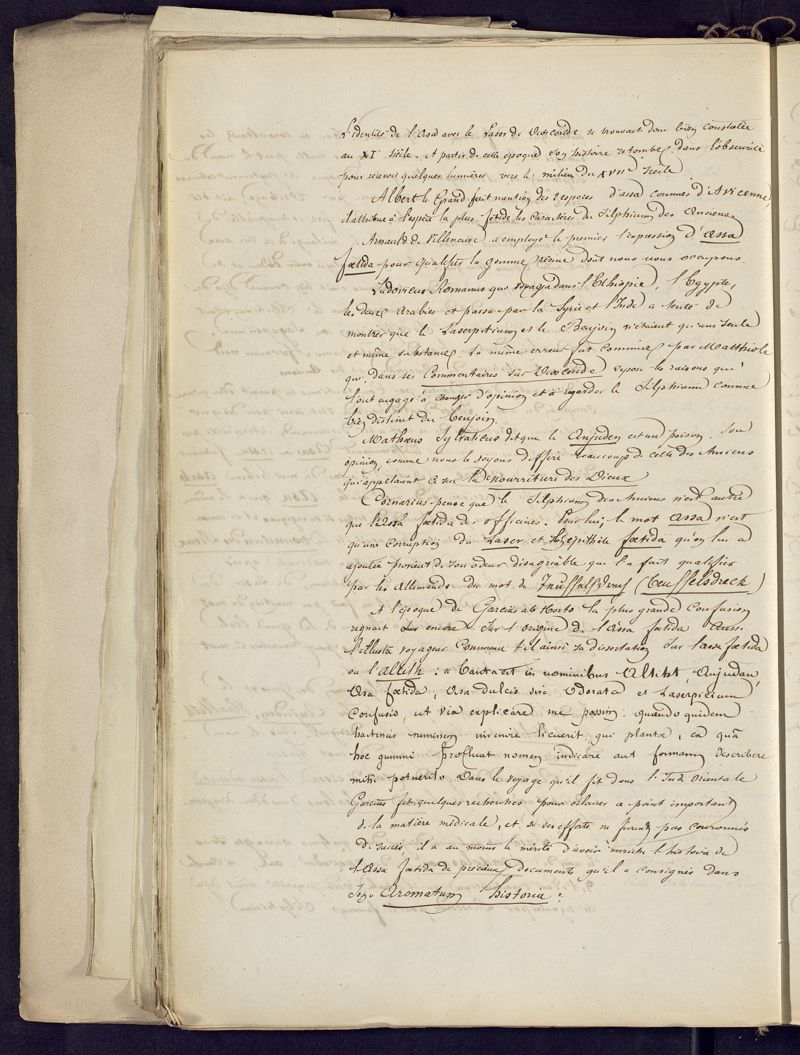 L'identité de l'Asa avec le Laser de Dioscoride se trouvait donc bien constatée
au XIe siècle. et partir de cette époque son histoire retombe dans l'obscurité
pour recevoir quelques lumières vers le milieu du XVIIe siècle.
Albert le Grand fait mention des 2 espèces d'assa connues d'Avicenne,
il attribue à l'espèce la plus fétide les caractères du Silphium des Anciens
Arnauld de Villeneuve a employé le premier l'expression d'assa
fœtida pour qualifier la gomme résine dont nous nous occupons.
Ludovicus Romanus qui voyagea dans l'Ethiopie, l'Egypte,
les deux Arabies et passa par la Syrie et l'Inde a tenté de
montrer que le Laserpitium et le Benjoin n'étaient qu'une seule
et même substance. La même erreur fut commise par Matthiole
qui, dans ses Commentaires sur Dioscoride expose les raisons qui
l'ont engagé à changer d'opinion et à regarder le Silphium comme
bien distinct du benjoin.
Mathæus Sylvaticus dit que le Anjuden est un poison. Son
opinion, comme nous le voyons diffère beaucoup de celle des Anciens
qui appelaient ce suc la nourriture des Dieux
Cornarius pense que le Silphium des Anciens n'est autre
que l'assa fœtida des officines; Pour lui, le mot assa n'est
qu'une corruption du Laser et l'épithète fœtida qu'on lui a
ajoutée provient de son odeur désagréable qui l'a fait qualifier
par les Allemands du mot de (teuffelsdreck)
A l'époque de Garcias ab Horto la plus grande confusion
regnait encore sur l'origine de l'Assa fœtida aussi
l'illustre voyageur commence t-il ainsi sa dissertation sur l'assa fœtida
ou l'altith: « Tanta est in nominibus Altiht, Anjudan,
Asa fœtida, Asa dulcis sive Odorata et Laserpicium
Confusio, ut vix explicare me possim: quando quidem
hactenus neminem invenire licuerit qui planta, ea quâ
hoc gummi profluat nomen indicare aut formam describere
mihi potuerit» Dans le voyage qu'il fit dans l'Inde orientale
Garcias fit quelques recherches pour éclairer ce point important
de la matière médicale, et si ses efforts ne furent pas couronnés
de succès, il a au moins le mérite d'avoir enrichi l'histoire de
l'Assa fœtida de précieux documents qu'il a consignés dans
son Aromatum historia: